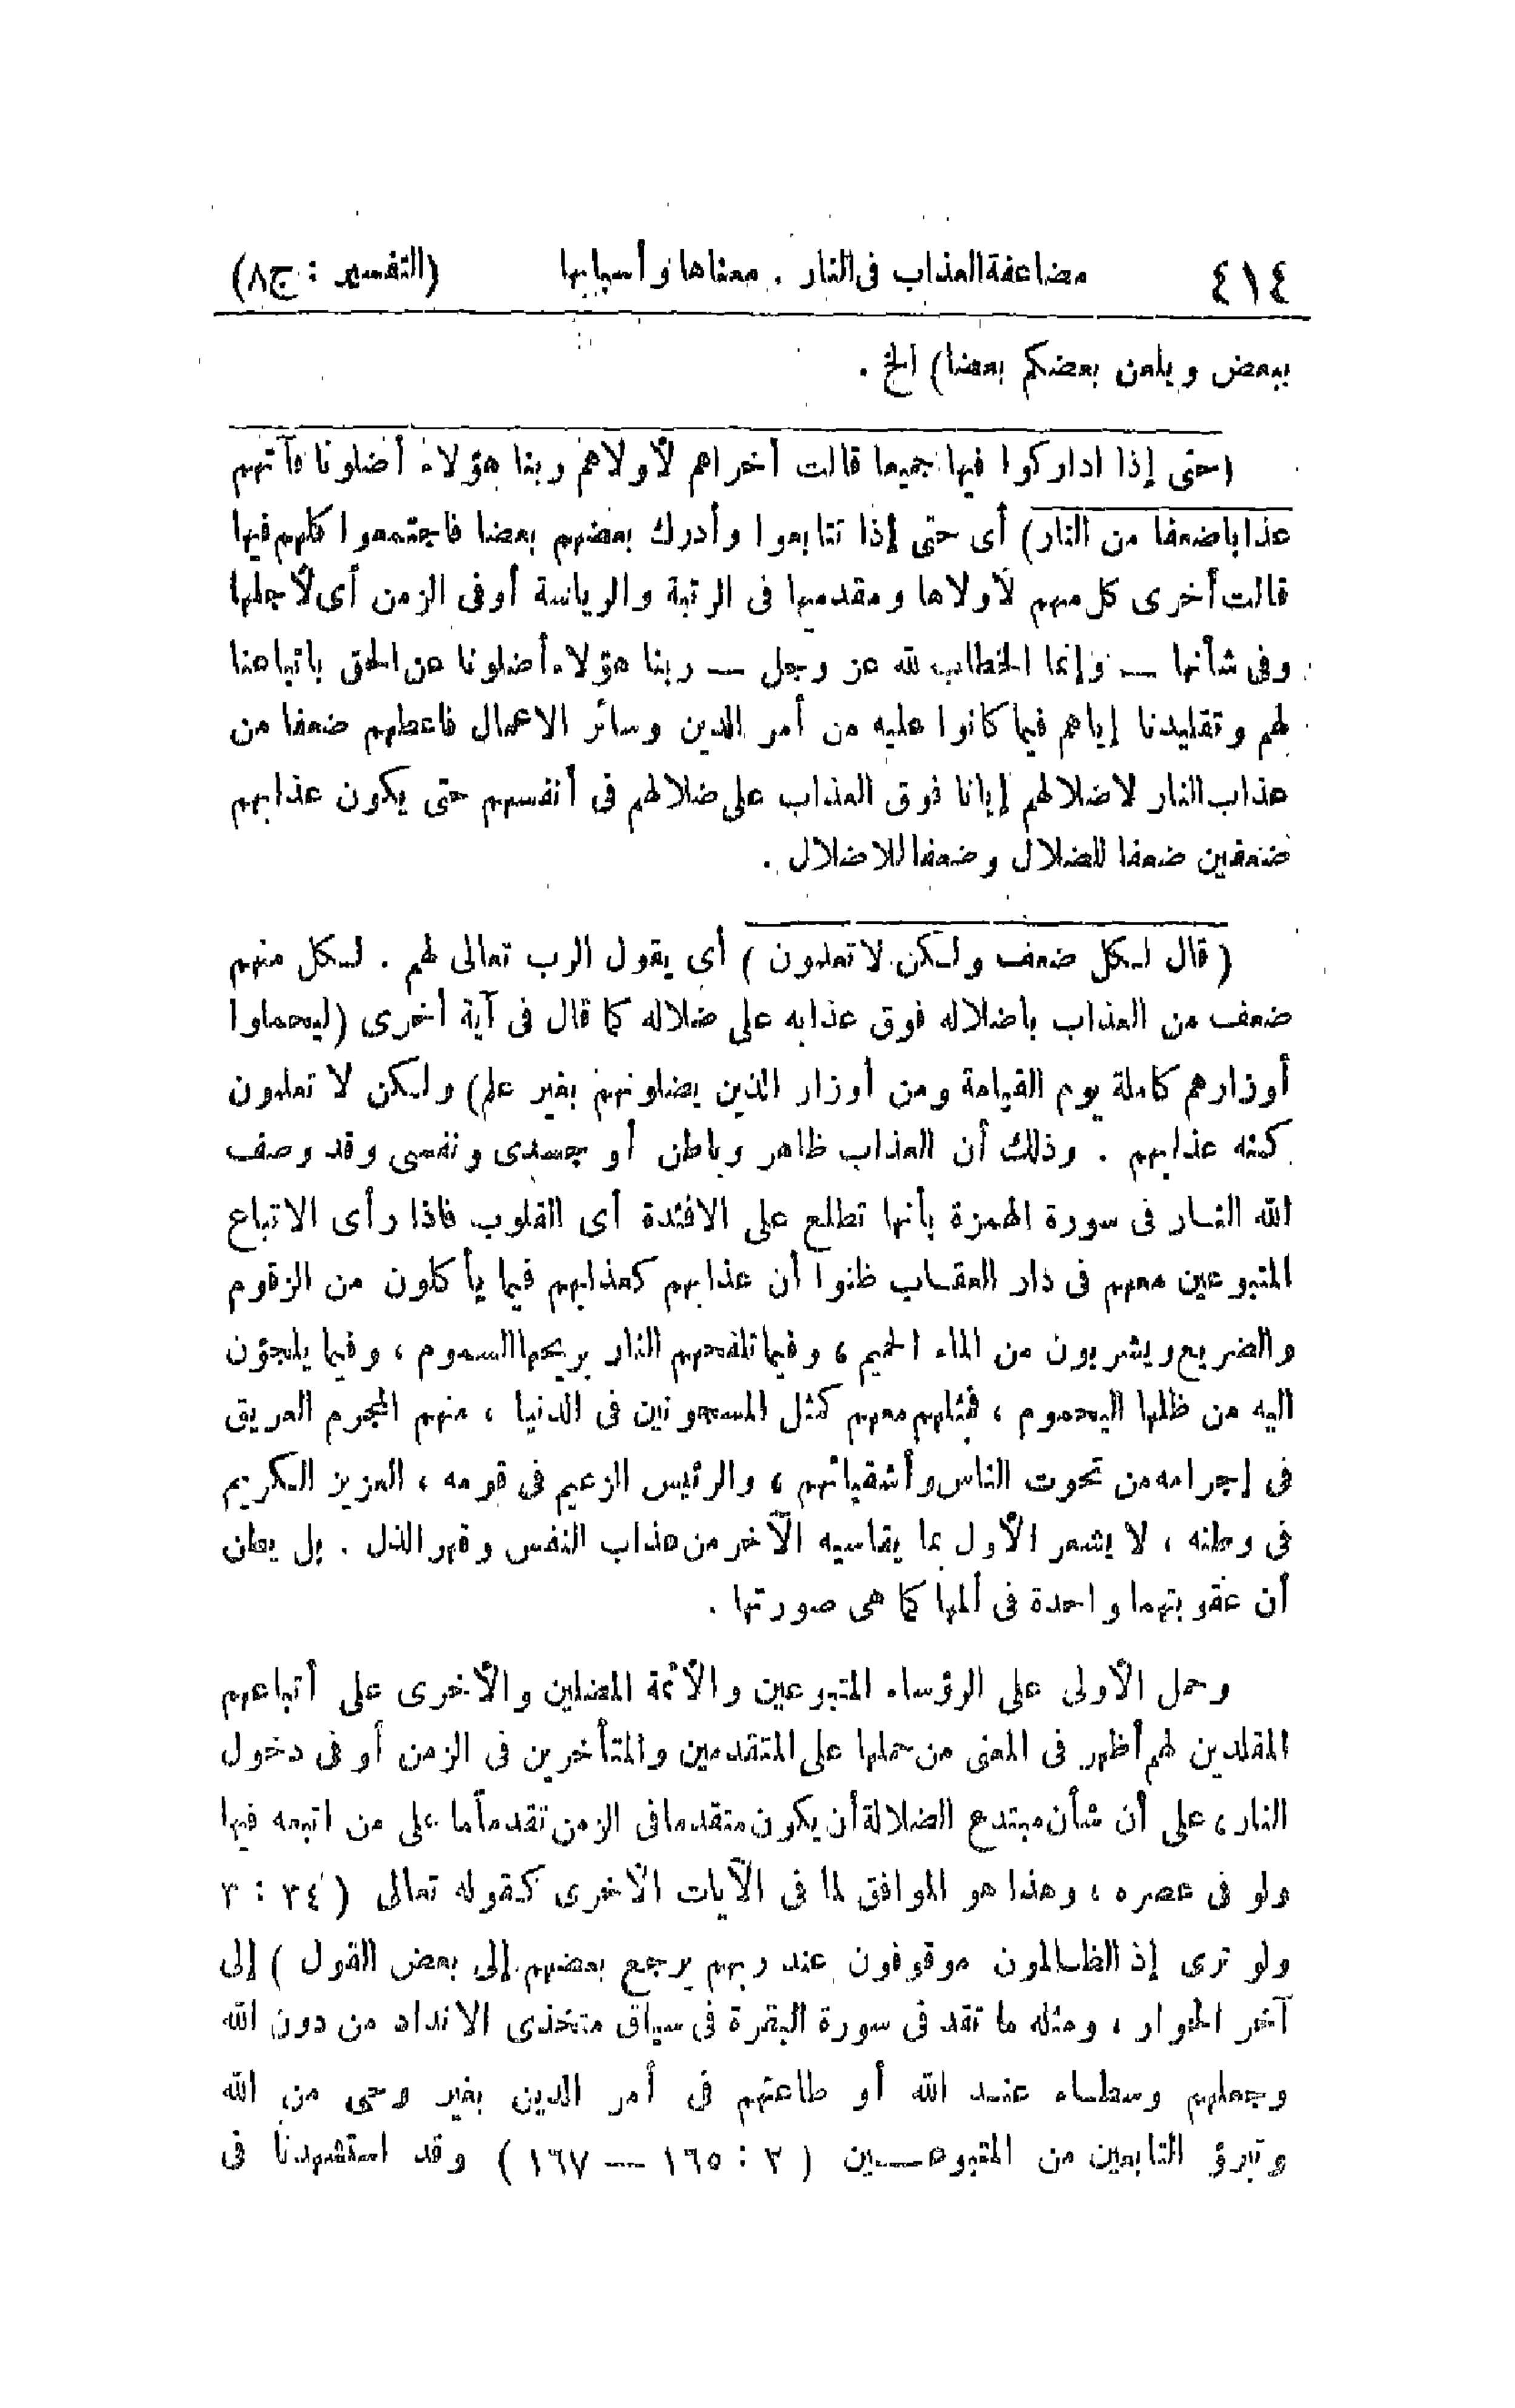 ٤١٤ مضاعفة العذاب فى النار . معناها وأسبابها (التفسير : ج٨)
ببعض ويلعن بعضكم بعضا) الخ .
(حتى إذا اداركوا فيها جميعا قالت أخراهم لأولاهم ربنا هؤلاء أضلونا فآتهم
عذابا ضعفا من النار) أى حتى إذا تتابعوا وأدرك بعضهم بعضا فاجتمعوا كلهم فيها
قالت أخرى كل منهم لأولاها ومقدميها فى الرتبة والرياسة أو فى الزمن أى لأجلها
وفى شأنها — وإنما الخطاب لله عز وجل — ربنا هؤلاء أضلونا عن الحق باتباعنا
لهم وتقليدنا إياهم فيما كانوا عليه من أمر الدين وسائر الاعمال فاعطهم ضعفا من
عذاب النار لاضلالهم إيانا فوق العذاب على ضلالهم فى أنفسهم حتى يكون عذابهم
ضعفين ضعفا للضلال وضعفا للاضلال .
( قال لكل ضعف ولكن لا تعلمون ) أى يقول الرب تعالى لهم . لكل منهم
ضعف من العذاب باضلاله فوق عذابه على ضلاله كما قال فى آية أخرى (ليحملوا
أوزارهم كاملة يوم القيامة ومن أوزار الذين يضلونهم بغير علم) ولكن لا تعلمون
كنه عذابهم . وذلك أن العذاب ظاهر وباطن أو جسدى ونفسى وقد وصف
الله النار فى سورة الهمزة بأنها تطلع على الافئدة أى القلوب فاذا رأى الاتباع
المتبوعين معهم فى دار العقاب ظنوا أن عذابهم كعذابهم فيما يأكلون من الزقوم
والضريع ويشربون من الماء الحميم ، وفيما تلفحهم النار بريحها السموم ، وفيما يلجؤن
اليه من ظلها اليحموم ، فمثلهم معهم كمثل المسجونين فى الدنيا ، منهم المجرم العريق
فى إجرامه من تحوت الناس وأشقيائهم ، والرئيس الزعيم فى قومه ، العزيز الكريم
فى وطنه ، لا يشعر الأول بما يقاسيه الآخر من عذاب النفس وقهر الذل . بل يظن
أن عقوبتهما واحدة فى ألمها كما هى صورتها .
وحمل الأولى على الرؤساء المتبوعين والأئمة المضلين والأخرى على أتباعهم
المقلدين لهم أظهر فى المعنى من حملها على المتقدمين والمتأخرين فى الزمن أو فى دخول
النار ، على أن شأن مبتدع الضلالة أن يكون متقدما فى الزمن تقدماً ما على من اتبعه فيها
ولو فى عصره ، وهذا هو الموافق لما فى الآيات الأخرى كقوله تعالى ( ٣٤ : ٣
ولو ترى إذ الظالمون موقوفون عند ربهم يرجع بعضهم إلى بعض القول ) إلى
آخر الحوار ، ومثله ما تقد فى سورة البقرة فى سياق متخذى الانداد من دون الله
وجعلهم وسطاء عند الله أو طاعتهم فى أمر الدين بغير وحى من الله
وتبرؤ التابعين من المتبوعين ( ٢ : ١٦٥ — ١٦٧ ) وقد استشهدنا فى